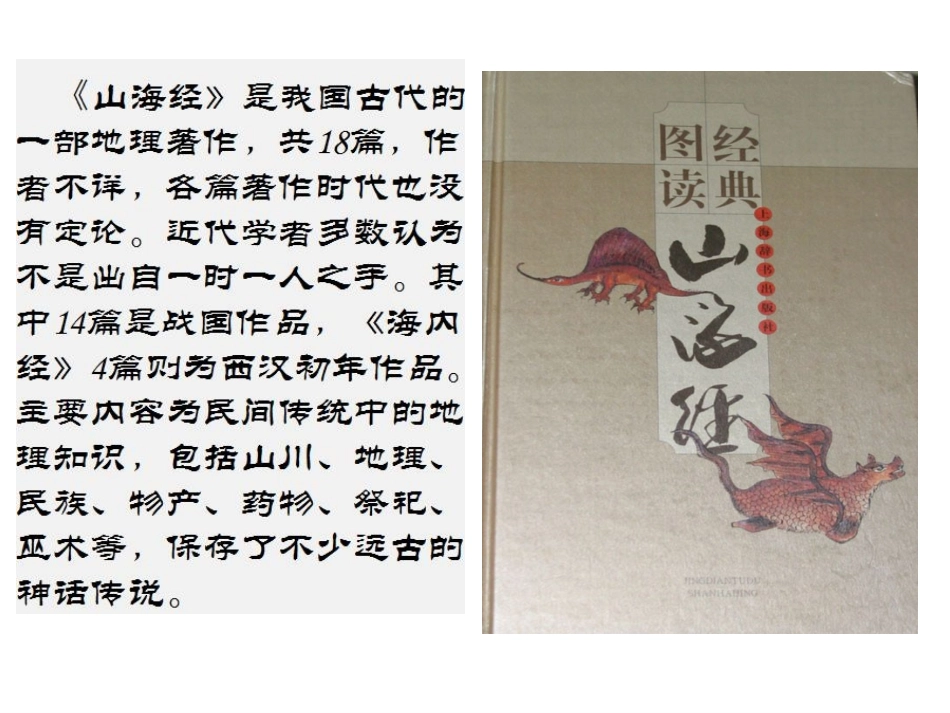 《山海经》是我国古代的
一部地理著作，共18篇，作
者不详，各篇著作时代也没
有定论。近代学者多数认为
不是出自一时一人之手。其
中14篇是战国作品，《海内
经》4篇则为西汉初年作品。
主要内容为民间传统中的地
理知识，包括山川、地理、
民族、物产、药物、祭祀、
巫术等，保存了不少远古的
神话传说。
经典
图读
山海经
上海辞书出版社
JINGDIANTUDU
SHANHAIJING